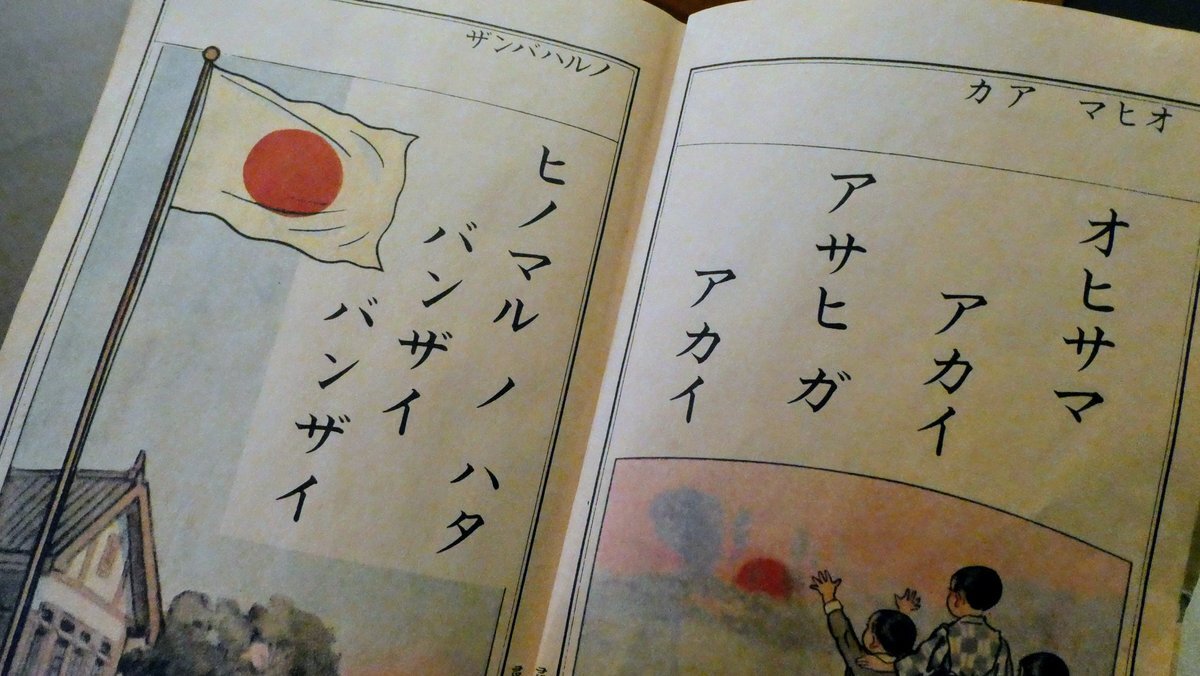 オヒマ アカ
オヒサマ
アカイ
アサヒ ガ
アカイ
ノルハバンザ
ヒノマル ノ ハタ
バンザイ
バンザイ